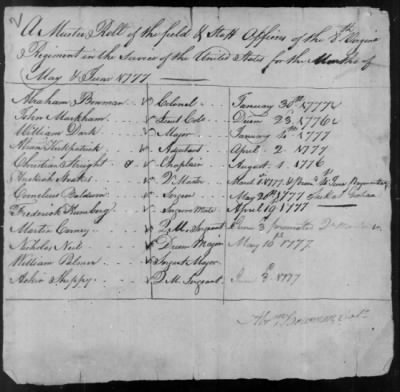 A Muster Roll of the field & Staff Officers of the 8th Virginia
Regiment in the Service of the United States for the Months of
May & June 1777
Abraham Bowman Colonel January 30th 1777
John Markham Lieut Colo 23 1776
William Dark Major January 4th 1777
Kirkpatrick Adjutant April 2 1777
Christian Streight Chaplain August 1 1776
Qr Master 1777
Cornelius Baldwin Surgeon May 1777
Frederick Surgeon Mate April 19 1777
Martin Carney Q M Sergeant June 3 promoted
Nicholas Neil Drum Major May 16th 1777
William Palmer Sergeant Major
Shippy Q M Sergeant June 3d 1777
Abrm Bowman Colo